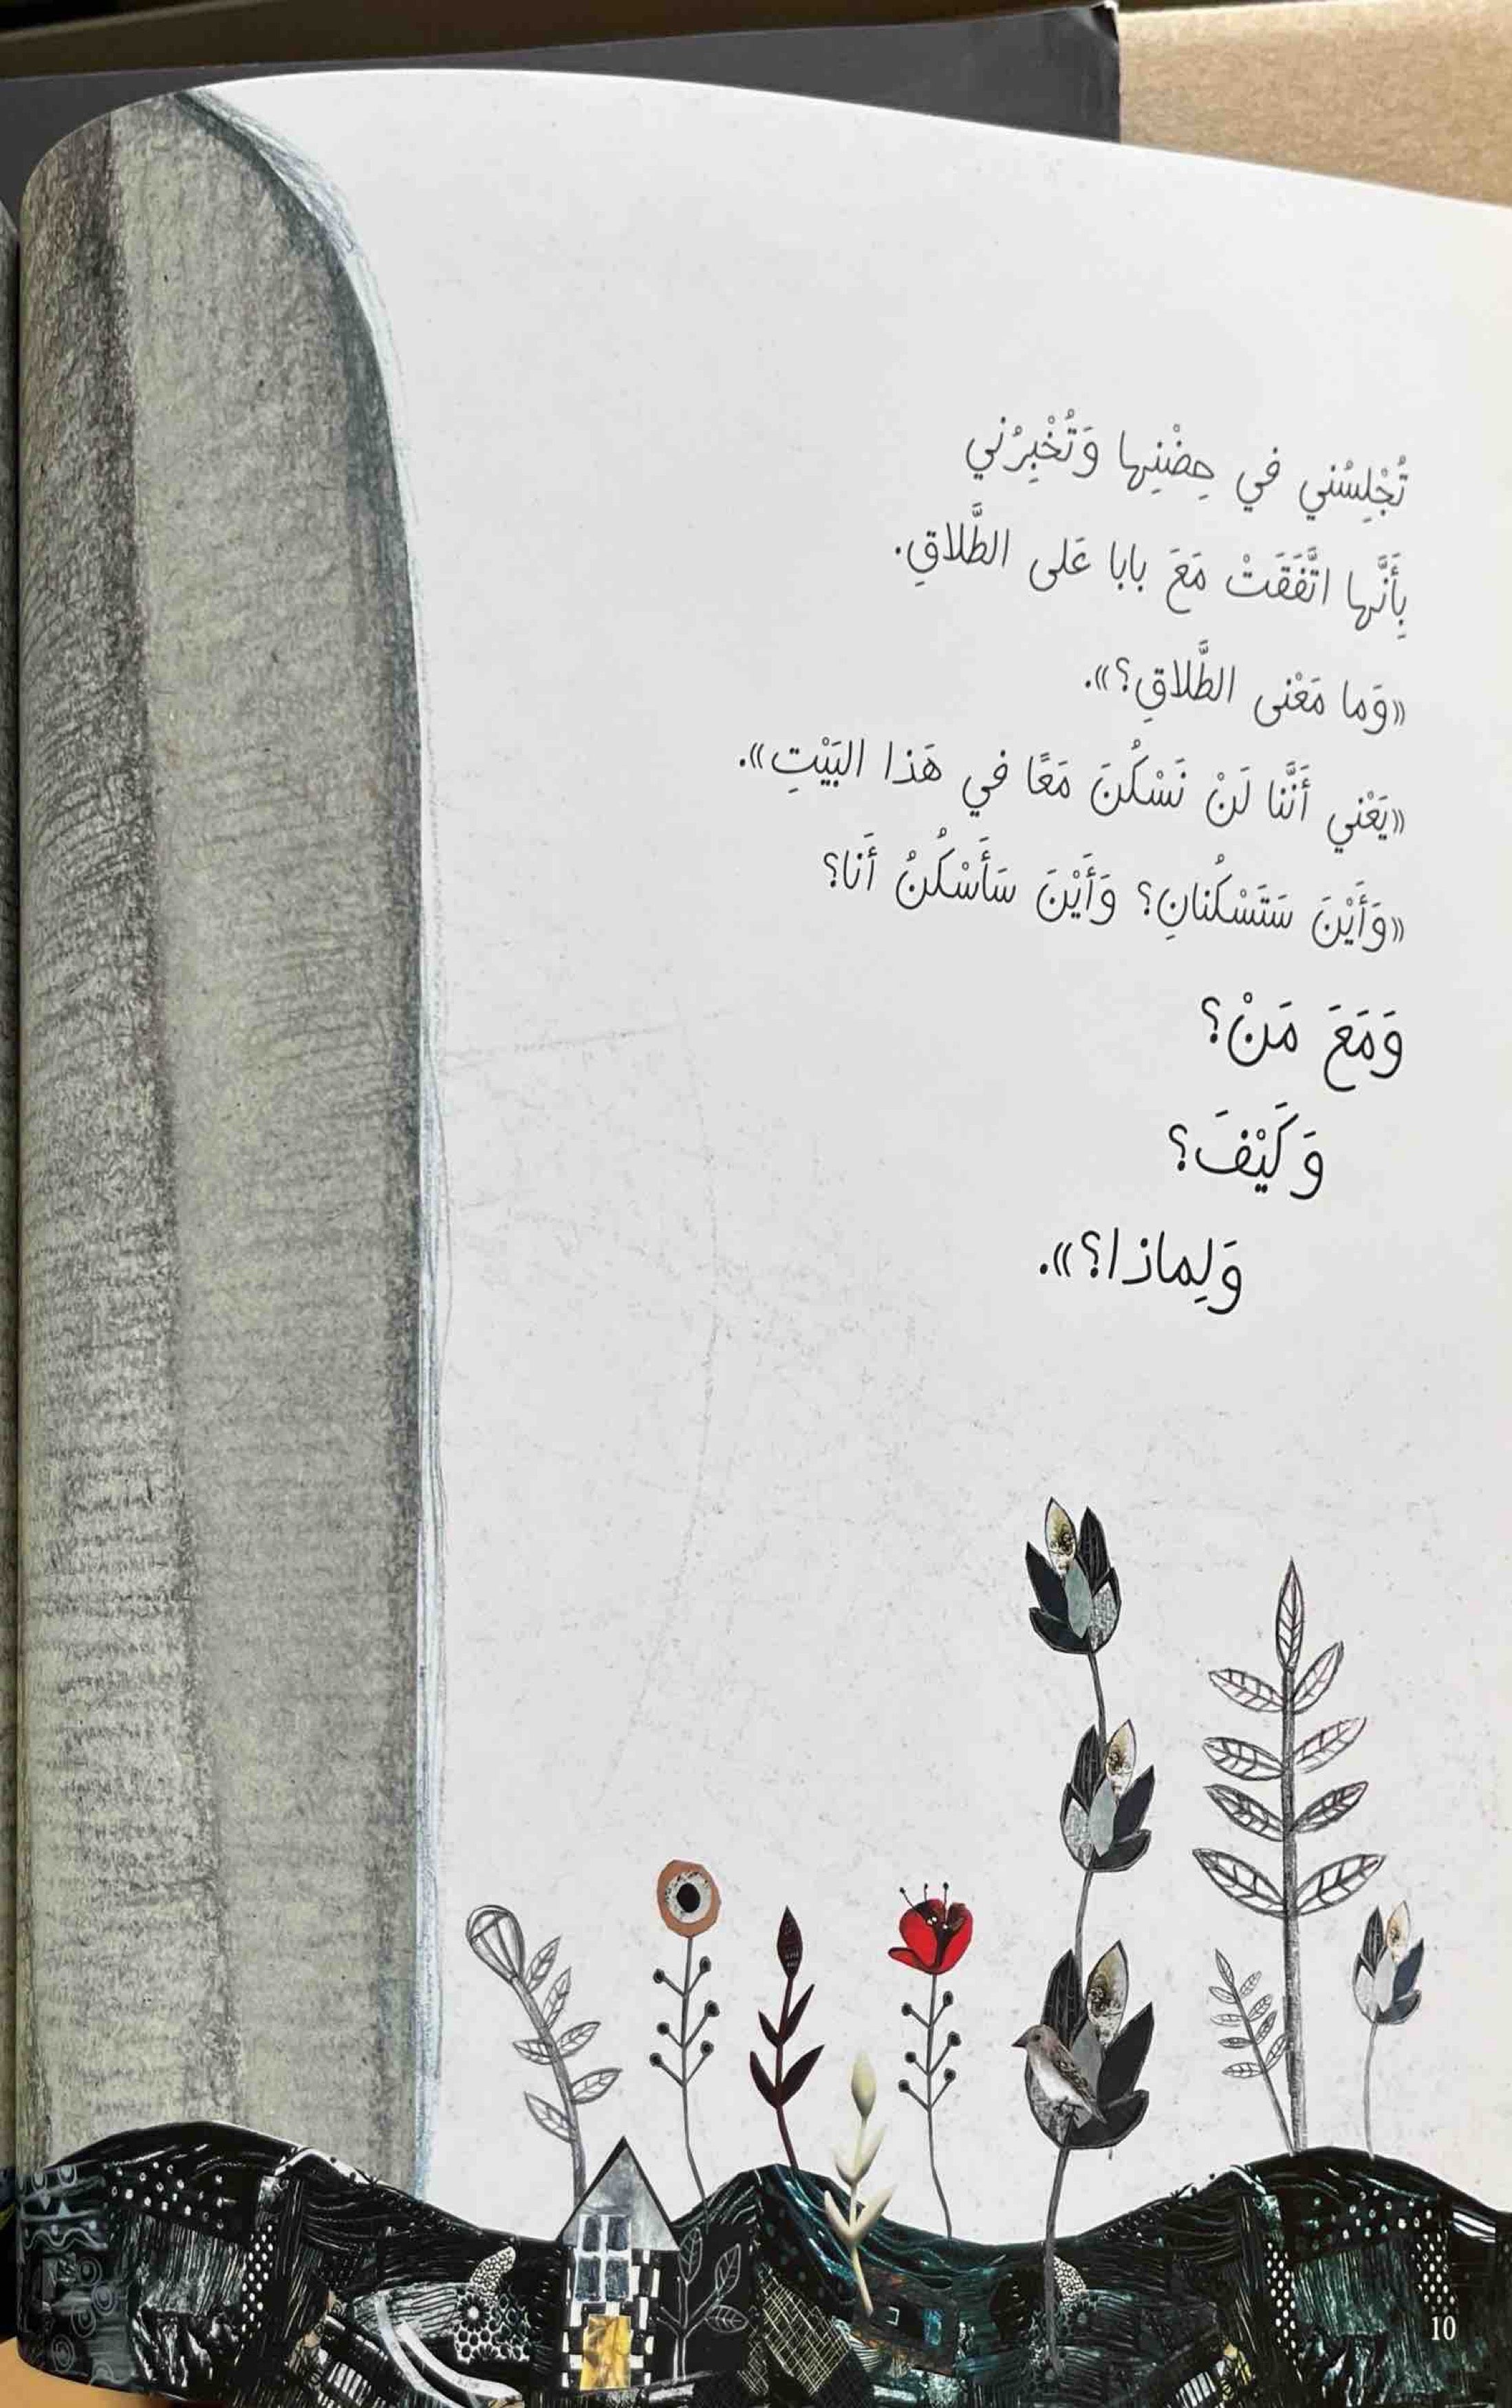 تُجْلِسُني في حِضْنِها وَتُخْبِرُني
بِأَنَّها اتَّفَقَتْ مَعَ بابا عَلى الطَّلاقِ.
«وَما مَعْنى الطَّلاقِ؟».
«يَعْني أَنَّنا لَنْ نَسْكُنَ مَعًا في هَذا البَيْتِ».
«وَأَيْنَ سَتَسْكُنانِ؟ وَأَيْنَ سَأَسْكُنُ أَنا؟
وَمَعَ مَنْ؟
وَكَيْفَ؟
وَلِماذا؟».
10